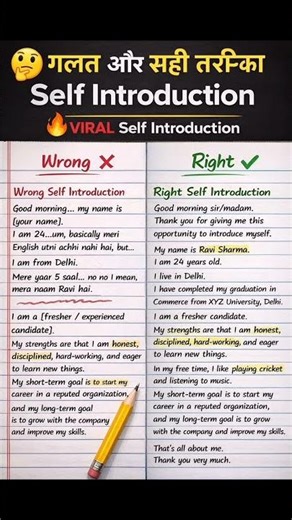 🤔 गलत और सही तरिका
Self Introduction
🔥VIRAL Self Introduction
Wrong ❌
Wrong Self Introduction
Good morning... my name is
[your name].
I am 24...um, basically meri
English utni achhi nahi hai, but...
I am from Delhi.
Mere yaar 5 saal... no no I mean,
mera naam Ravi hai.
I am a [fresher / experienced
candidate].
My strengths are that I am honest,
disciplined, hard-working, and eager
to learn new things.
My short-term goal is to start my
career in a reputed organization,
and my long-term goal
is to grow with the company
and improve my skills.
Right ✔
Right Self Introduction
Good morning sir/madam.
Thank you for giving me this
opportunity to introduce myself.
My name is Ravi Sharma.
I am 24 years old.
I live in Delhi.
I have completed my graduation in
Commerce from XYZ University, Delhi.
I am a fresher candidate.
My strengths are that I am honest,
disciplined, hard-working, and eager
to learn new things.
In my free time, I like playing cricket
and listening to music.
My short-term goal is to start my
career in a reputed organization,
and my long-term goal is to grow
with the company and improve my skills.
That's all about me.
Thank you very much.